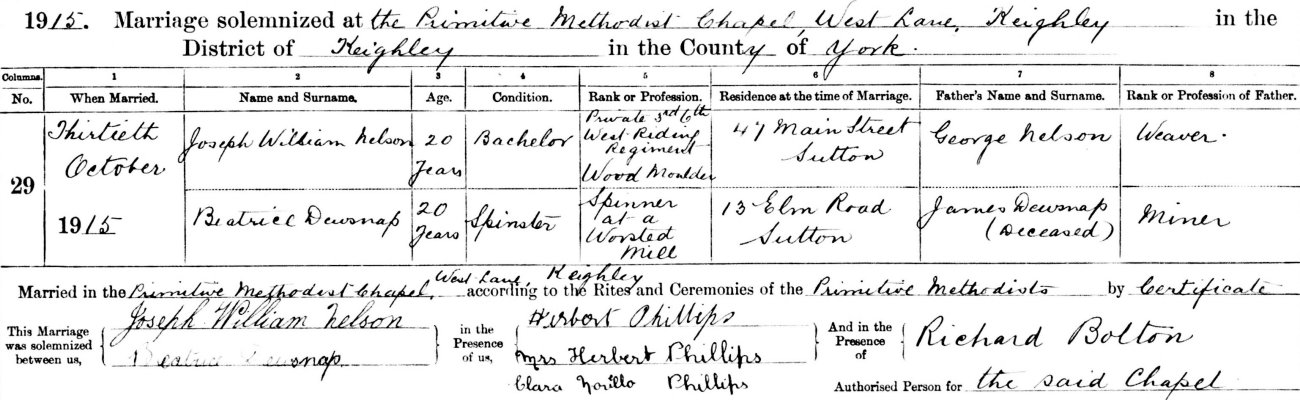 1915. Marriage solemnized at the Primitive Methodist Chapel, West Lane, Keighley in the
District of Keighley in the County of York.
Columns. 1 2 3 4 5 6 7 8
No. When Married. Name and Surname. Age. Condition. Rank or Profession. Residence at the time of Marriage. Father's Name and Surname. Rank or Profession of Father.
29
Thirtieth
October
1915
Joseph William Nelson
20
Years
Bachelor
Private 3rd 6th
West Riding
Regiment
Wood Moulder
47 Main Street
Sutton
George Nelson
Weaver.
Beatrice Dewsnap
20
Years
Spinster
Spinner
at a
Worsted
Mill
13 Elm Road
Sutton
James Dewsnap
(Deceased)
Miner
Married in the Primitive Methodist Chapel, West Lane, Keighley according to the Rites and Ceremonies of the Primitive Methodists by Certificate
This Marriage
was solemnized
between us,
Joseph William Nelson
Beatrice Dewsnap
in the
Presence
of us,
Herbert Phillips
Mrs Herbert Phillips
Clara Phillips
And in the
Presence
of
Richard Bolton
Authorised Person for the said Chapel